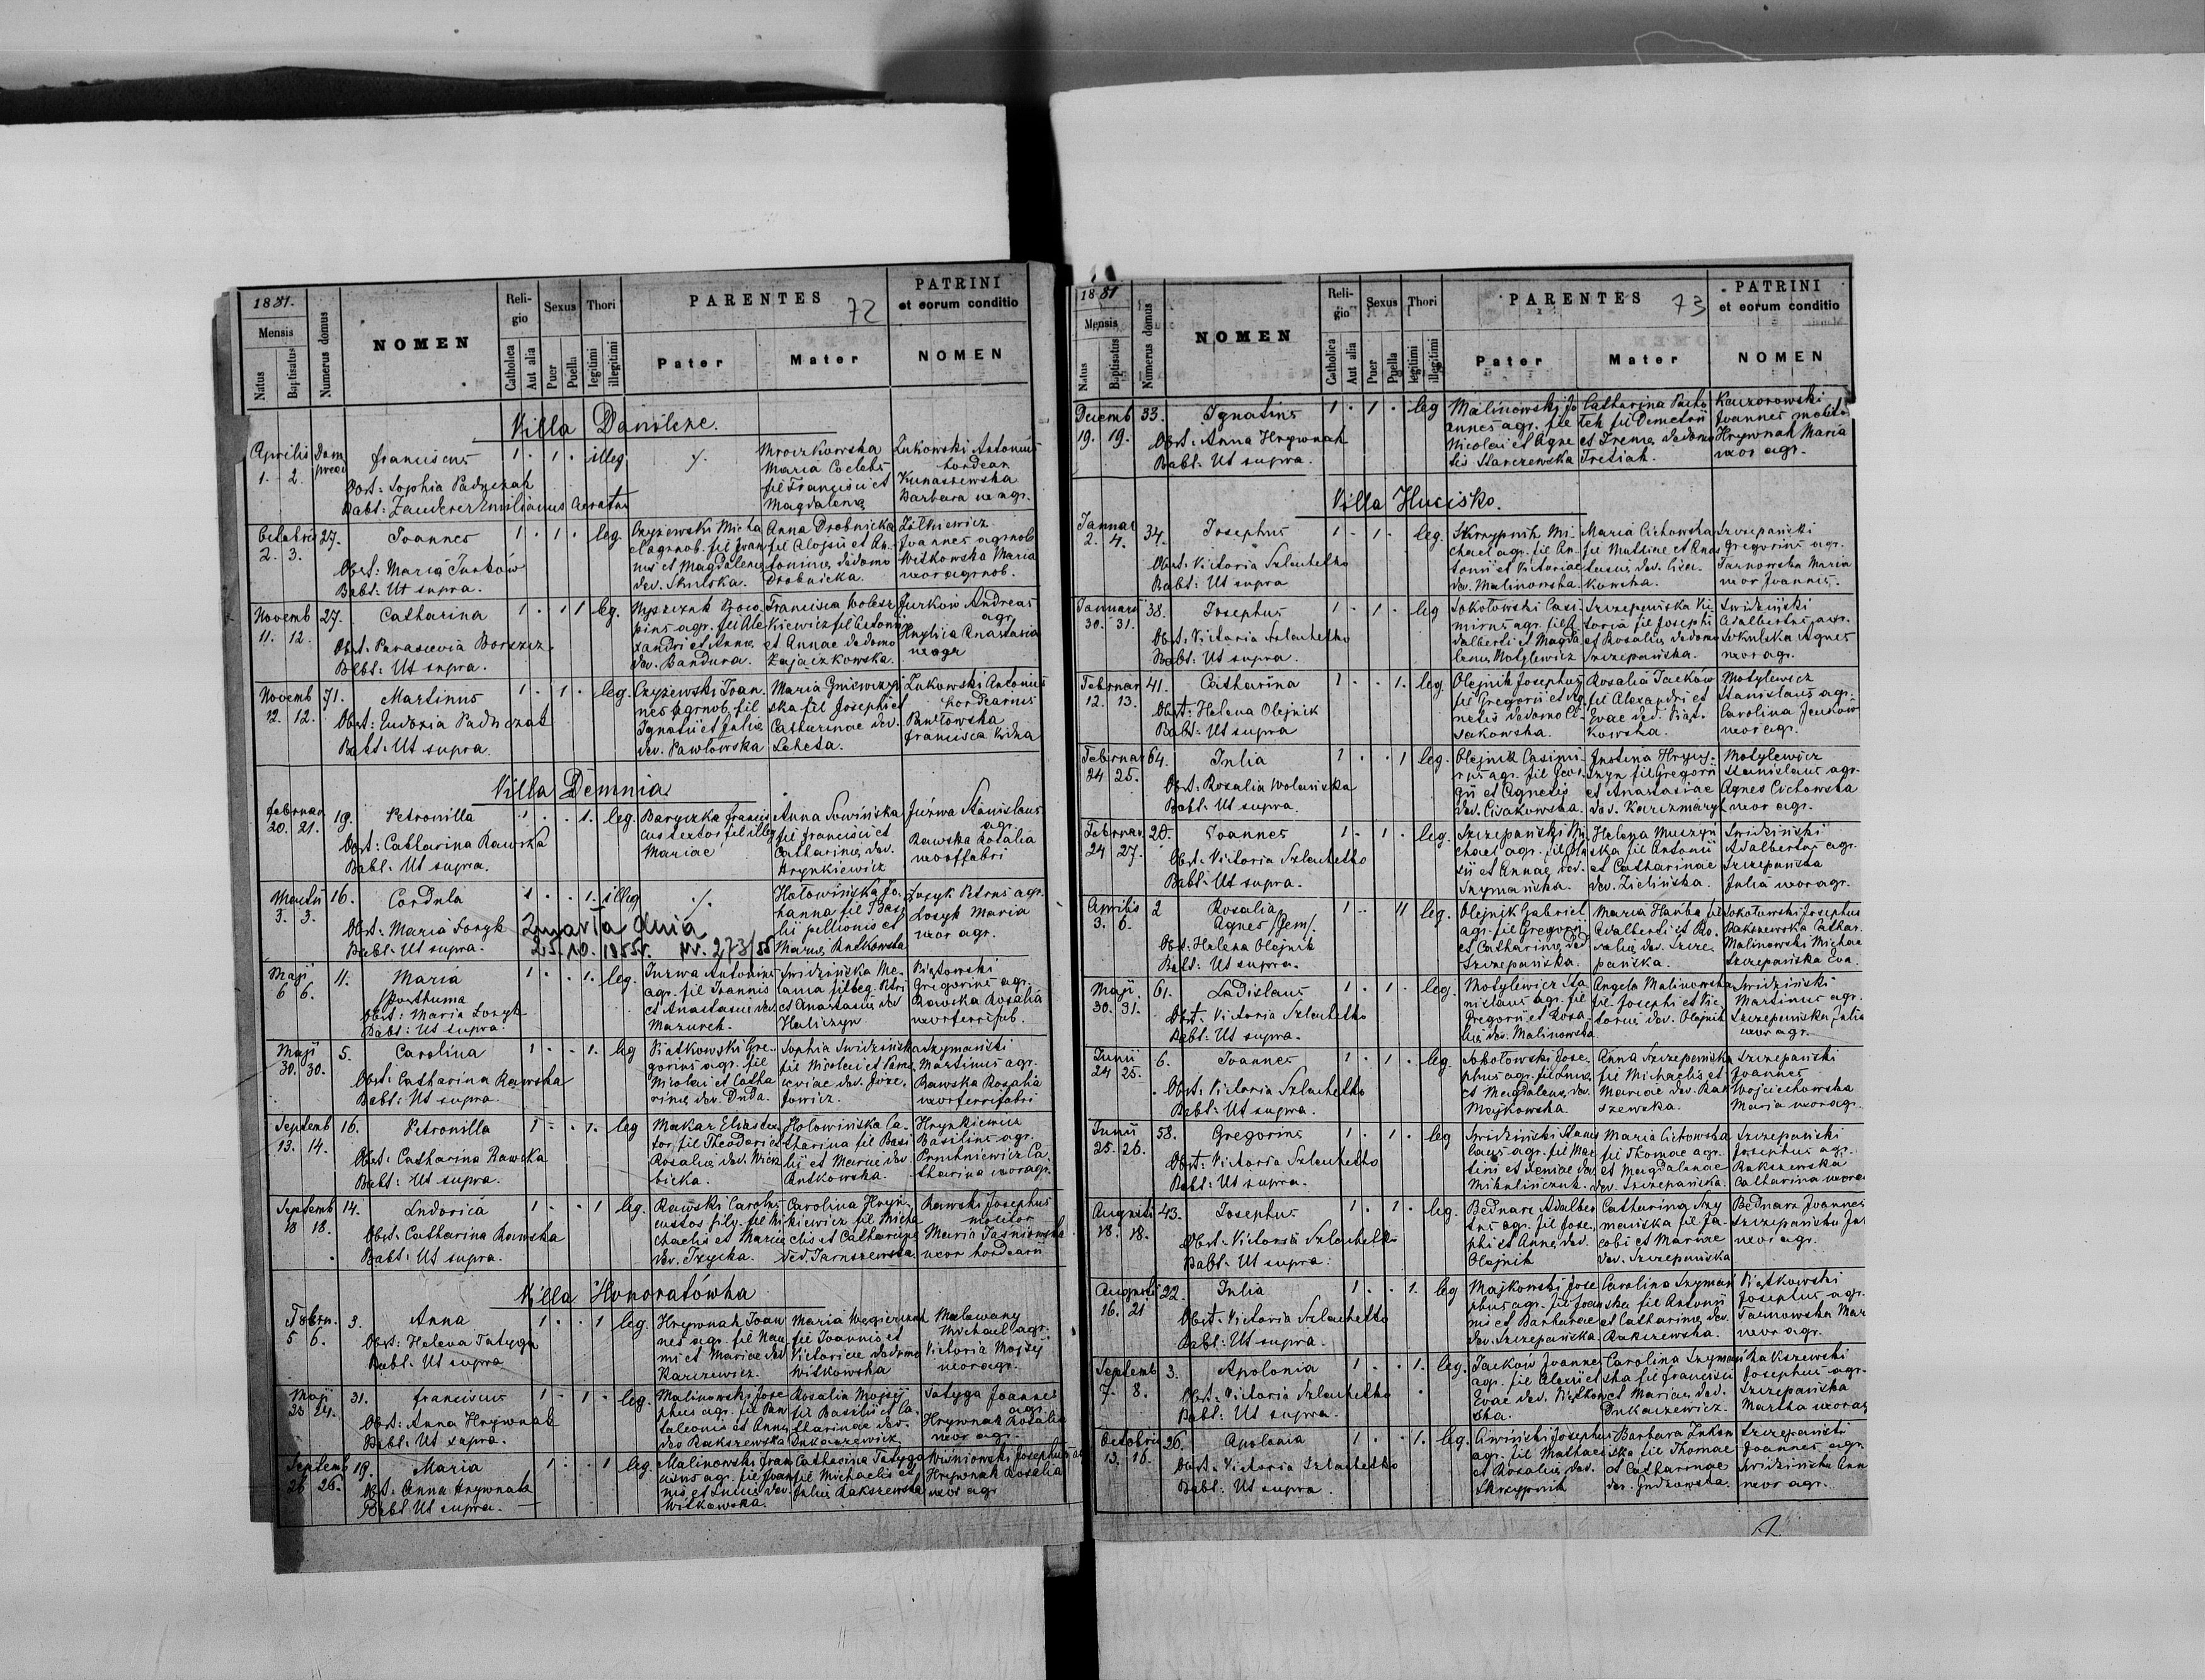 1881.
Mensis
Natus
Baptisatus
Numerus domus
NOMEN
Religio
Catholica
Aut alia
Sexus
Puer
Puella
Thori
legitimi
illegitimi
PARENTES
72
Pater
Mater
PATRINI
et eorum conditio
NOMEN
Villa Danilcze.
Aprilis
1. 2.
Franciscus
1 . 1 . illeg
Obst: Sophia Paduczak
Babt: Zauderer Emilianus
Mroczkowska
Maria Coelebs
fil Francisci et
Magdalenae
Żukowski Antonius
Kunaszewska
Barbara ux agr.
Octobris 27.
2. 3.
Joannes
1 . 1 . leg.
Obst: Maria Jurków
Babt: Ut supra.
Czyżewski Micha
el agr nob. fil Joan
nis et Magdalenae
dev. Skulska.
Anna Drobnicka
fil Aloisii et An
toninae de domo
Drobnicka.
Żitkiewicz
Joannes agr nob
Witkowska Maria
uxor agr nob.
Novemb 27.
11. 12.
Catharina
1 . . 1 leg.
Obst: Parascevia
Babt: Ut supra.
pius agr. fil Ale
xandri et Annae
dev. Bandura.
Francisca
kiewicz fil Antonii
et Annae de domo
Zajączkowska.
Jurków Andreas
agr
Anastasia
ux agr
Novemb 71.
12. 12.
Martinus
1 . 1 . leg.
Obst: Eudoxia Paduczak
Babt: Ut supra.
Czyżewski Joan
nes agr nob. fil
Ignatii et Juliae
dev. Pawłowska
Maria
ska fil Josephi et
Catharinae dev.
Leheta.
Żukowski Antonius
hordearius
Pawłowska
Francisca
Villa Demnia
Februar 19.
20. 21.
Petronilla
1 . . 1. leg.
Obst: Catharina Rawska
Babt: Ut supra.
Baryczka Francis
cus textor fil illeg
Mariae
Anna Sowińska
fil Francisci et
Catharinae dev.
Hrynkiewicz
Jurwa Stanislaus
agr
Rawska Rosalia
uxor fabri
Martii 16.
3. 3.
Cordula
1 . . 1. illeg
Obst: Maria Łozyk
Babt: Ut supra.
Zmarła dnia
25.10.1955r. Nr. 273/55
Hołowińska Jo
hanna fil Basi
lii pellionis et
Mariae Rutkowska
Łozyk Petrus agr.
Łozyk Maria
uxor agr.
Maji 11.
6 6.
Maria
/posthuma
1 . . 1. leg.
Obst: Maria Łozyk
Babt: Ut supra.
Jurwa Antonius
agr. fil Joannis
et Anastasiae dev.
Mazurek.
Swidzińska Me
lania fil Petri
et Anastasiae dev
Haliczyn
Piątowski
Gregorius agr.
Rawska Rosalia
uxor
Maji 5.
30. 30.
Carolina
1 . . 1. leg
Obst: Catharina Rawska
Babt: Ut supra.
Piatkowski Gre
gorius agr. fil
Nicolai et Catha
rinae dev. Duda.
Sophia Swidzińska
fil Nicolai et
dev.
Szymański
Martinus agr.
Rawska Rosalia
uxor ferrifabri
Septemb 16.
13. 14.
Petronilla
1 . . 1. leg
Obst: Catharina Rawska
Babt: Ut supra.
Makar Elias tex
tor, fil Theodori et
Rosaliae dev. Wierz
bicka.
Hołowińska Ca
tharina fil Basi
lii et Mariae dev
Rutkowska.
Hrynkiewicz
Basilius agr.
Ca
tharina uxor agr.
Septemb 14.
18 18.
Ludovica
1 . . 1 leg.
Obst: Catharina Rawska
Babt: Ut supra.
Rawski Carolus
custos sylv. fil Mi
chaelis et Mariae
dev. Trzycka.
Carolina Hryn
kiewicz fil Micha
elis et Catharinae
ded. Jaruszewska
Rawski Josephus
molitor
Maria Jaśniowska
uxor hordearii
Villa Honoratówka
Febru. 3.
5 6.
Anna
1 . . 1 leg.
Obst: Helena Tatyga
Babt: Ut supra
Hrywnak Joan
nes agr. fil Nau
mi et Mariae ded
Karczewicz.
Maria Węgierczuk
fil Joannis et
Victoriae de domo
Witkowska
Malowany
Michael agr.
Victoria Mojsej
uxor agr.
Maji 31.
23 24.
Franciscus
1 . 1 . leg.
Obst: Anna Hrywnak
Babt: Ut supra.
Malinowski Jose
phus agr. fil Pan
taleonis et Annae
dev Rakszewska
Rosalia Mojsej
fil Basilii et Ca
tharinae dev.
Dukaczewicz
Tatyga Joannes
agr.
Hrywnak Rosalia
uxor agr.
Septemb 19.
26 26.
Maria
1 . . 1 leg.
Obst: Anna Hrywnak
Babt Ut supra.
Malinowski Fran
ciscus agr. fil Joan
nis et Luciae dev.
Witkowska.
Catharina Tatyga
fil Michaelis et
Juliae Rakszewska
Wiśniowski Josephus
Hrywnak Rosalia
uxor agr
1881
Mensis
Natus
Baptisatus
Numerus domus
NOMEN
Religio
Catholica
Aut alia
Sexus
Puer
Puella
Thori
legitimi
illegitimi
PARENTES
73
Pater
Mater
PATRINI
et eorum conditio
NOMEN
Decemb 33.
19. 19.
Ignatius
1 . 1 . leg
Obst: Anna Hrywnak
Babt: Ut supra.
Malinowski Jo
annes agr. fil
Nicolai et Agne
tis Starczewska
Catharina
fil Demetrii
et Irenae de domo
Tretiak.
Kaczorowski
Joannes molitor
Hrywnak Maria
uxor agr.
Villa Hucisko.
Januar 34.
2. 4.
Josephus
1 . 1 . leg.
Obst: Victoria Szlachetko
Babt: Ut supra
Skrzypnik Mi
chael agr. fil An
tonii et Victoriae
dev. Malinowska.
Maria Cichowska
fil Mathiae et Anas
tasiae dev.
kowska.
Szczepański
Gregorius agr.
Tarnowska Maria
uxor Joannis.
Januarii 38.
30. 31.
Josephus
1 . 1 . leg
Obst: Victoria Szlachetko
Babt: Ut supra.
Sokołowski Casi
mirus agr. fil A
dalberti et Magda
lenae Motylewicz
Szczepańska Vic
toria fil Josephi
et Rosaliae de domo
Szczepańska.
Swidziński
Adalbertus agr.
Sokulska Agnes
uxor agr.
Februar 41.
12. 13.
Catharina
1 . . 1. leg.
Obst: Helena Olejnik
Babt: Ut supra
Olejnik Josephus
fil Gregorii et Ag
netis de domo Ci
sakowska.
Rosalia Jacków
fil Alexandri et
Evae ded. Piąt
kowska.
Motylewicz
Stanislaus agr.
Carolina Jacków
uxor agr.
Februar 64.
24 25.
Julia
1 . . 1 leg.
Obst: Rosalia Wolańska
Babt: Ut supra.
Olejnik Casimi
rus agr. fil Gregorii
et Agnetis
dev. Cisakowska.
Justina Hryny
szyn fil Gregorii
et Anastasiae
dev. Karczmaryk
Motylewicz
Stanislaus agr.
Agnes Cichowska
uxor agr.
Februar 20.
24 27.
Joannes
1 . 1 . leg.
Obst: Victoria Szlachetko
Babt: Ut supra.
Szczepański Mi
chael agr.
et Annae dev.
Szymańska.
Helena Muszyń
ska fil Antonii
et Catharinae
dev. Zielińska.
Swidziński
Adalbertus agr.
Szczepańska
Julia uxor agr.
Aprilis 2
3. 6.
Rosalia
Agnes /Gem/.
1 . . 11 leg.
Obst: Helena Olejnik
Babt: Ut supra.
Olejnik Gabriel
agr. fil Gregorii
et Catharinae ded
Szczepańska.
Maria Hańba fil
Adalberti et Ro
saliae dev. Szcze
pańska.
Sokołowski Josephus
Rakszewska Cathar.
Malinowski Michae
Szczepańska Eva.
Maji 61.
30. 31.
Ladislaus
1 . 1 . leg.
Obst: Victoria Szlachetko
Babt: Ut supra.
Motylewicz Sta
nislaus agr. fil
Gregorii et Rosa
liae dev. Malinowska
Angela Malinowska
fil. Josephi et Vic
toriae dev. Olejnik
Swidziński
Martinus agr.
Szczepańska Julia
uxor agr.
Junii 6.
24 25.
Joannes
1 . 1 . leg.
Obst: Victoria Szlachetko
Babt: Ut supra.
Sokołowski Jose
phus agr. fil Lucae
et Magdalenae dev.
Majkowska.
Anna Szczepańska
fil Michaelis et
Mariae dev. Rak
szewska.
Szczepański
Joannes
Wojciechowska
Maria uxor agr.
Junii 58.
25. 26.
Gregorius
1 . 1 . leg
Obst: Victoria Szlachetko
Babt: Ut supra.
Swidziński Stanis
laus agr. fil Mar
tini et Xeniae dev
Mikulińczuk.
Maria Cichowska
fil Thomae agr.
et Magdalenae
dev. Szczepańska.
Szczepański
Josephus agr.
Rakszewska
Catharina uxor a
Augusti 43.
18. 18.
Josephus
1 . 1 . leg.
Obst: Victoria Szlachetko
Babt: Ut supra.
Bednarz Adalber
tus agr. fil Jose
phi et Annae dev.
Olejnik
Catharina Szy
mańska fil Ja
cobi et Mariae
dev. Szczepańska
Bednarz Joannes
Szczepańska Ju
uxor agr.
Augusti 22.
16. 21
Julia
1 . . 1. leg
Obst: Victoria Szlachetko
Babt: Ut supra.
Majkowski Jose
phus agr. fil Joan
nis et Barbarae
dev. Szczepańska.
Carolina Szymań
ska fil Antonii
et Catharinae dev.
Rakszewska.
Piątkowski
Josephus agr.
Tarnowska Mar
uxor agr.
Septemb 3.
7. 8.
Apolonia
1 . . 1. leg.
Obst: Victoria Szlachetko
Babt: Ut supra.
Jacków Joannes
agr. fil Alexii et
Evae dev. Piątkow
ska.
Carolina Szymań
ska fil Francisci
et Mariae ded.
Dukaczewicz.
Rakszewski
Josephus agr.
Szczepańska
Martha uxor ag
Octobris 26.
13. 16.
Apolonia
1 . . 1. leg.
Obst: Victoria Szlachetko
Babt: Ut supra.
Josephus
agr. fil Mathaei
et Rosaliae dev.
Skrzypnik
Barbara Żukow
ska fil Thomae
et Catharinae
dev.
Szczepański
Joannes agr.
Swidzińska Ann
uxor agr.